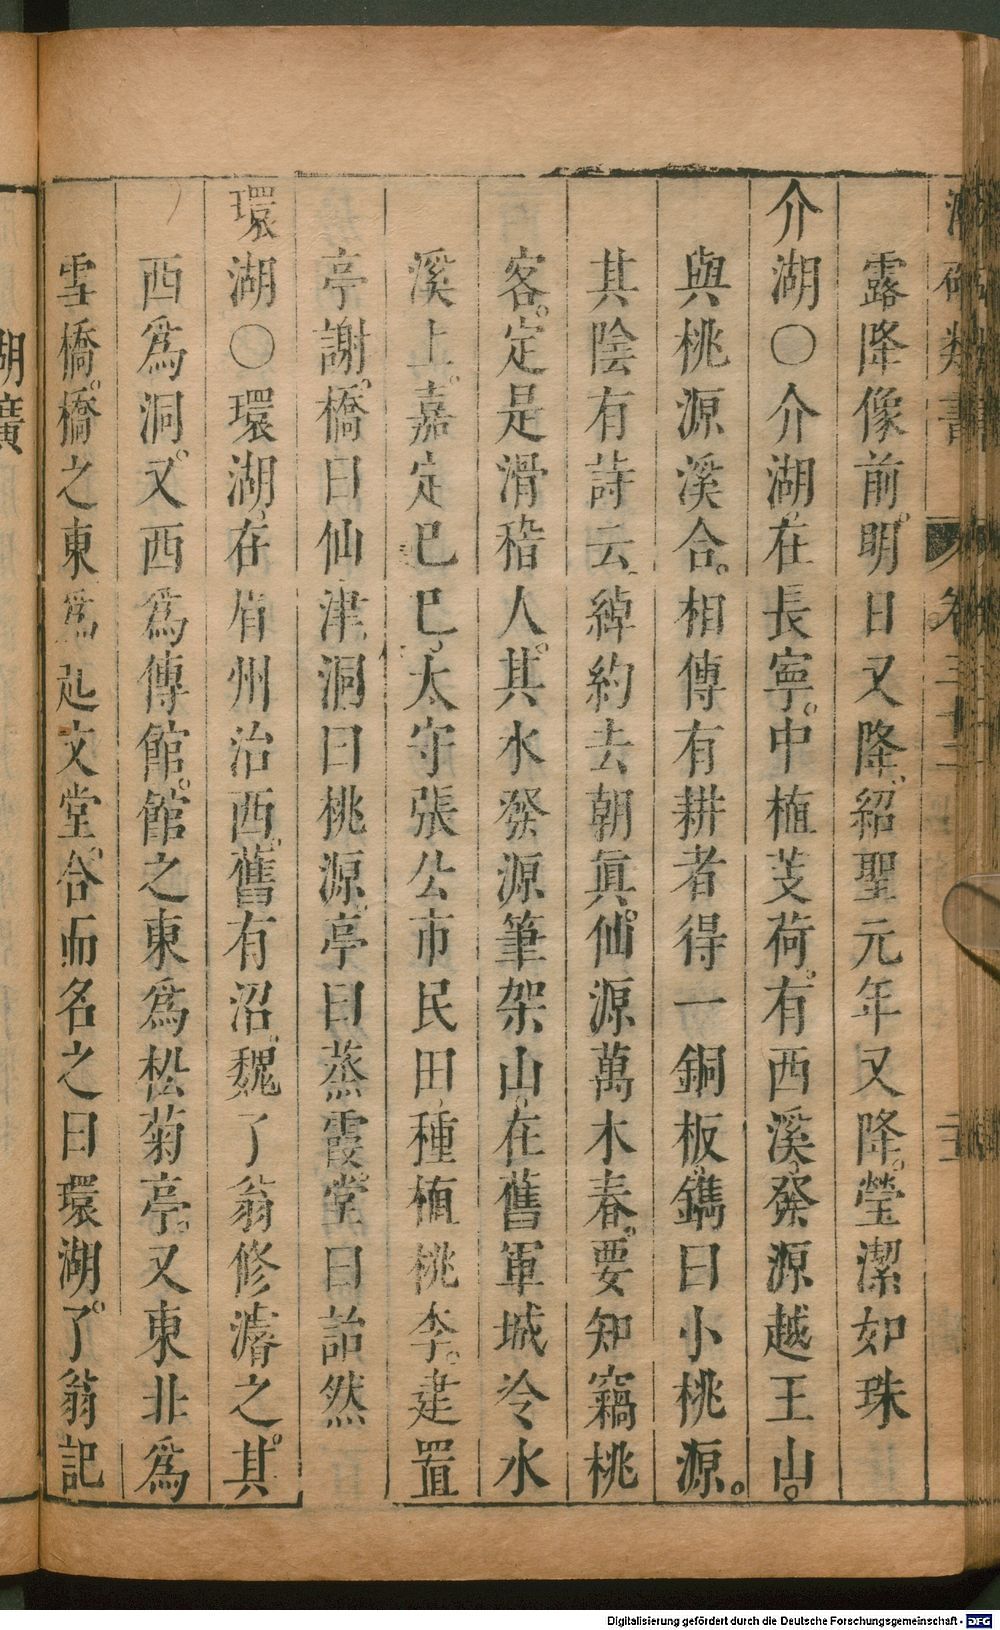 露降像前。明日又降。紹聖元年又降。瑩潔如珠
介湖〇介湖在長寧。中植芰荷。有西溪。發源越王山。
與桃源溪合。相傳有耕者得一銅板。鐫曰小桃源。
其陰有詩云。綽約去朝真。仙源萬木春。要知竊桃
客。定是滑稽人。其水發源筆架山。在舊軍城冷水
溪上。嘉定己巳。太守張公市民田。種植桃李。建置
亭謝。橋曰仙津。洞曰桃源。亭曰蒸霞。堂曰詒然
環湖〇環湖在眉州治西。舊有沼。魏了翁修濬之。其
西為洞。又西為傳館。館之東為松菊亭。又東北為
雪橋。橋之東為起文堂。合而名之曰環湖。了翁記
湖廣
Digitalisierung gefördert durch die Deutsche Forschungsgemeinschaft - DFG